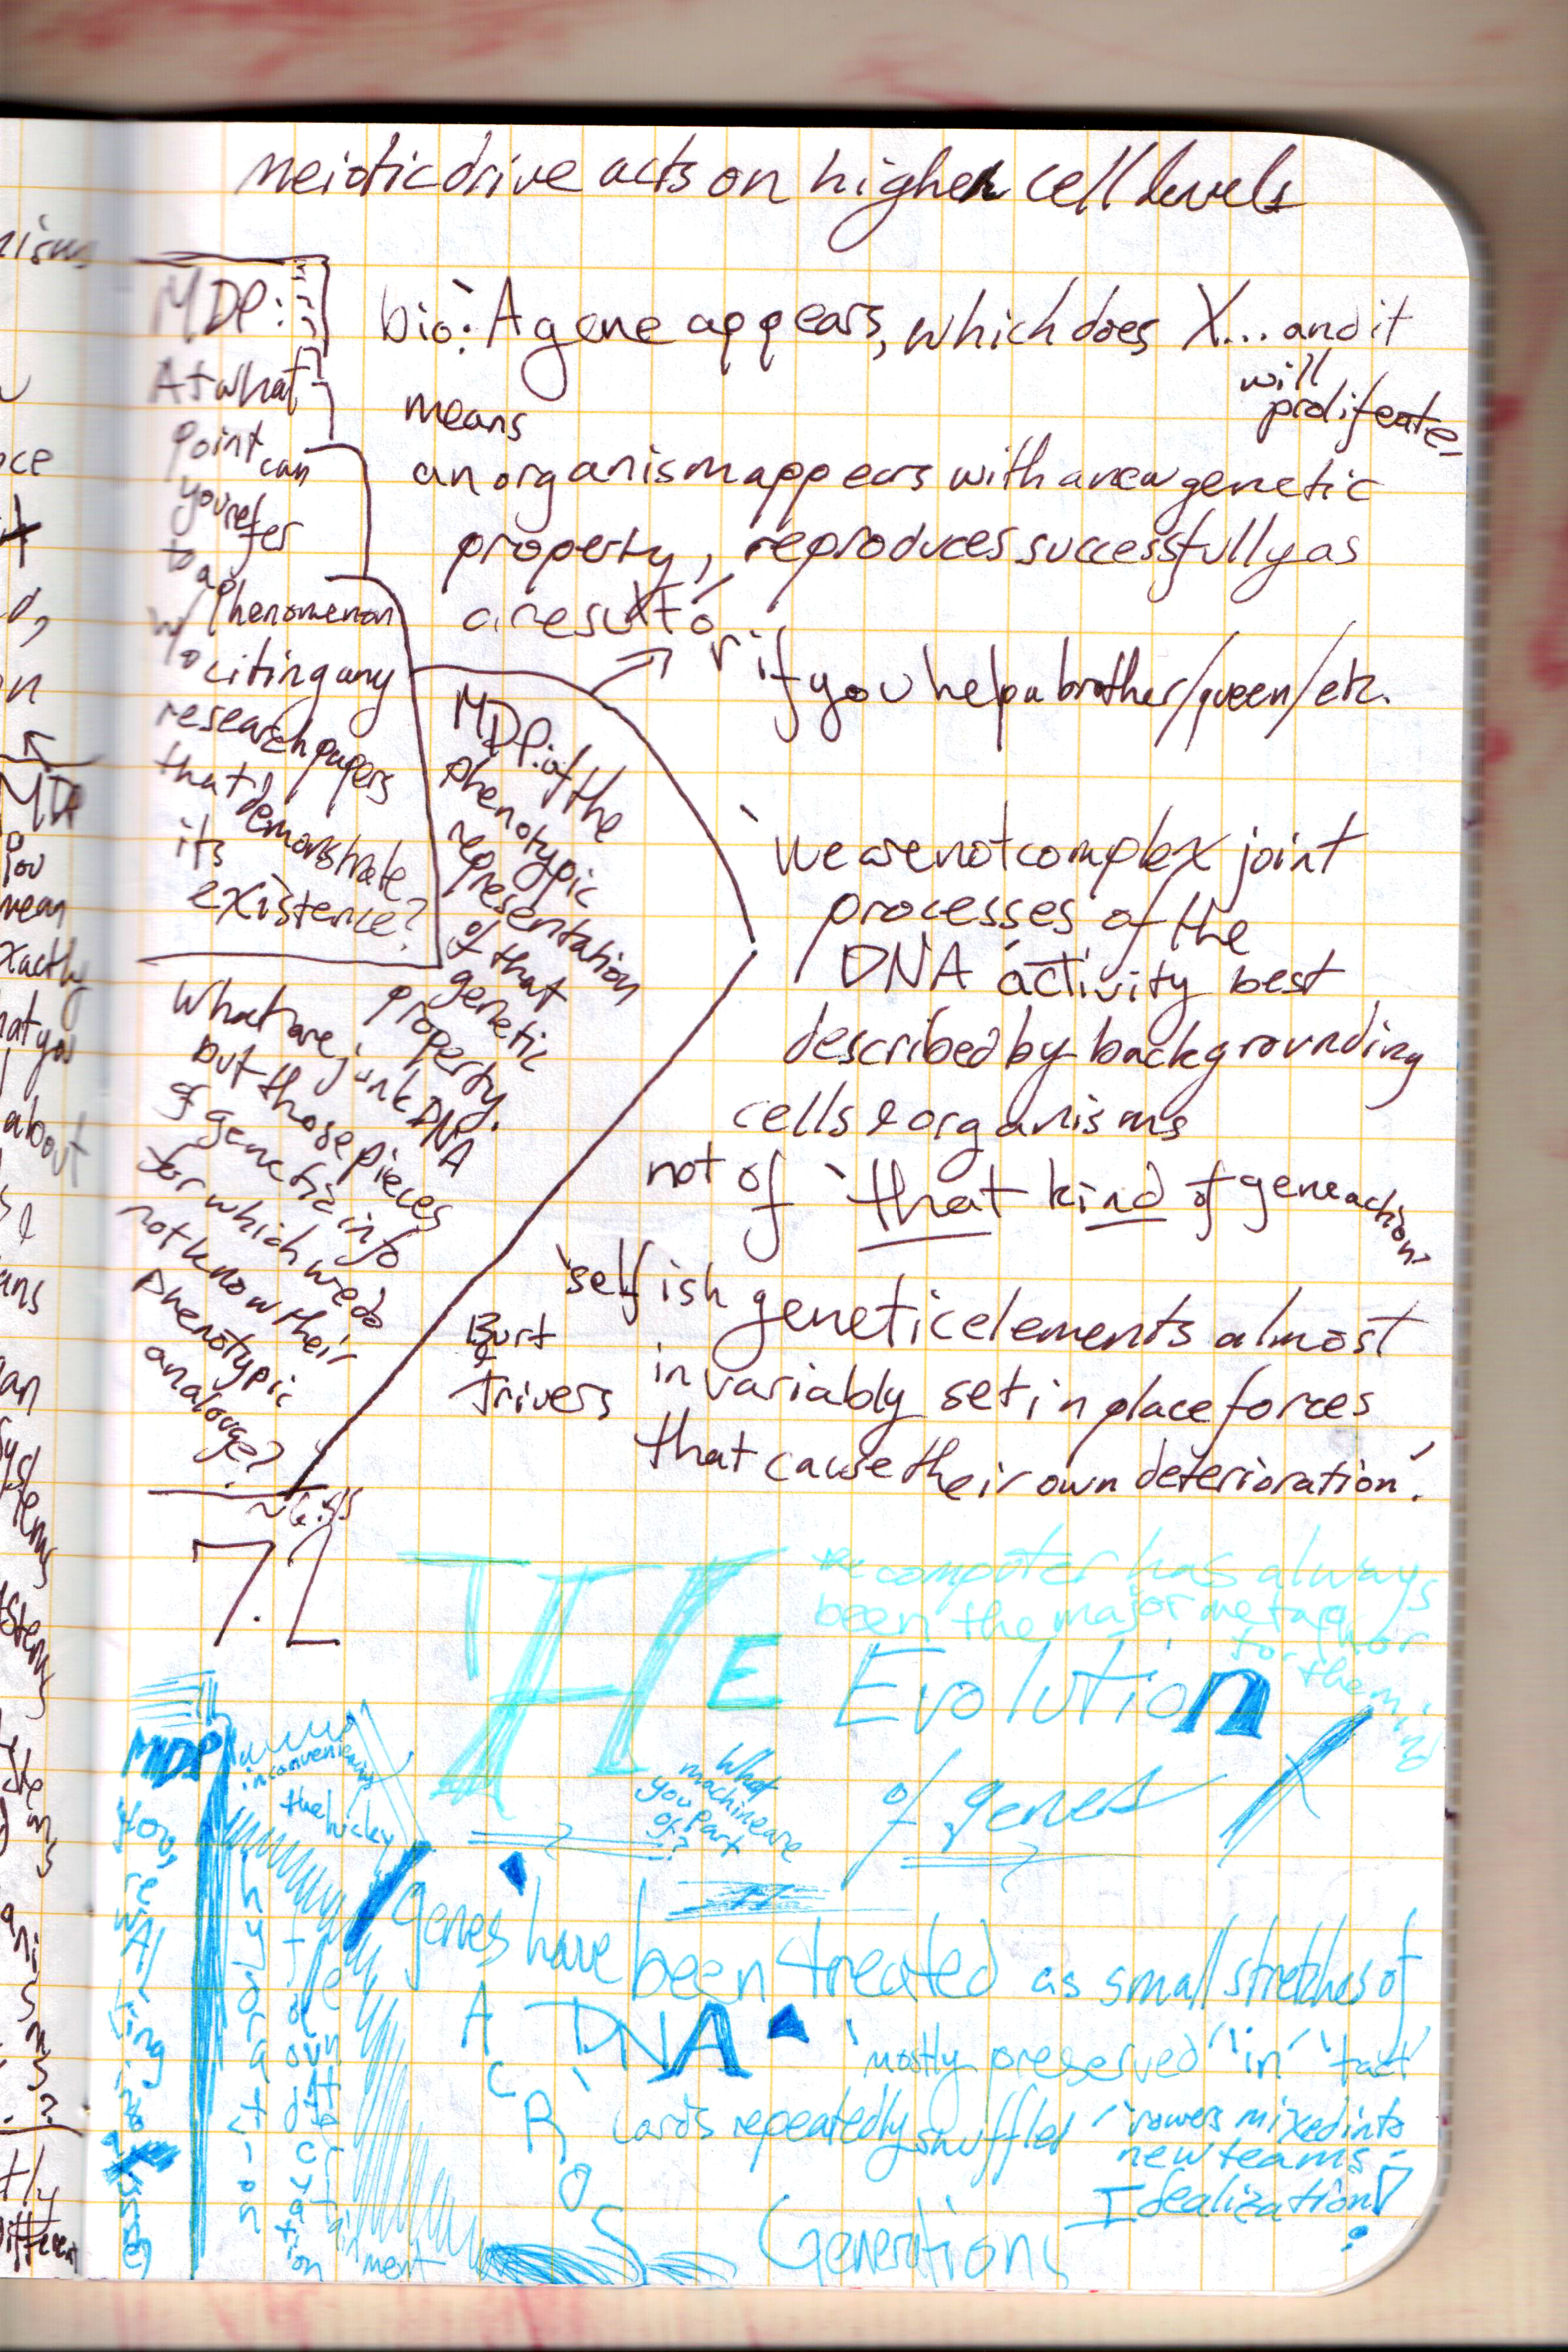 meiotic drive acts on higher cell levels
MDP:
At what
point can
you refer
to a
phenomenon
w/o citing any
research papers
that demonstrate
its
existence?
bio: A gene appears, which does X... and it
will
proliferate
means
an organism appears with a new genetic
property, reproduces successfully as
a result
or if you help a brother/queen/etc.
MDP: of the
phenotypic
representation
of that
genetic
property.
What are junk DNA
but those pieces
of genetic info
for which we do
not know their
phenotypic
analouge?
'we are not complex joint
processes of the
DNA activity best
described by backgrounding
cells & organisms
not of 'that kind of gene action'
'selfish genetic elements almost
Burt
&
Trivers
invariably set in place forces
that cause their own deterioration.'
7.2
THE Evolution
of genes
the computer has always
been the major metaphor
for the mind
What
machine are
you part
of?
MDP
inconvenience
the
genes have been treated as small stretches of
DNA
'mostly preserved 'in' 'tact
cards repeatedly shuffled
'rowers mixed into
new teams'
Idealization!
ACROSS
Generations
hydration